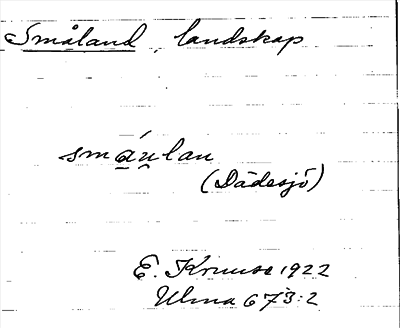 Småland, landskap
smáu̯lan
(Dädesjö)
E. Kruuse 1922
Ulma 673:2